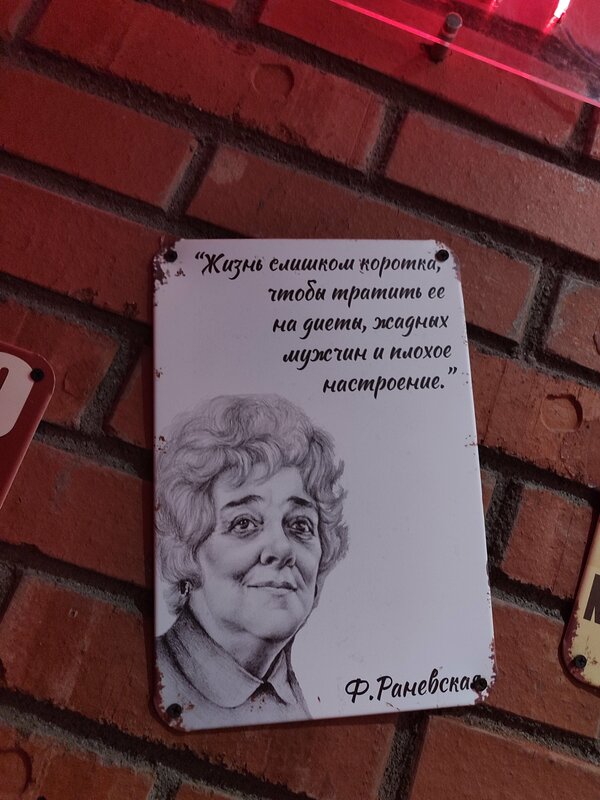 “Жизнь слишком коротка,
чтобы тратить ее
на диеты, жадных
мужчин и плохое
настроение.”
Ф.Раневская